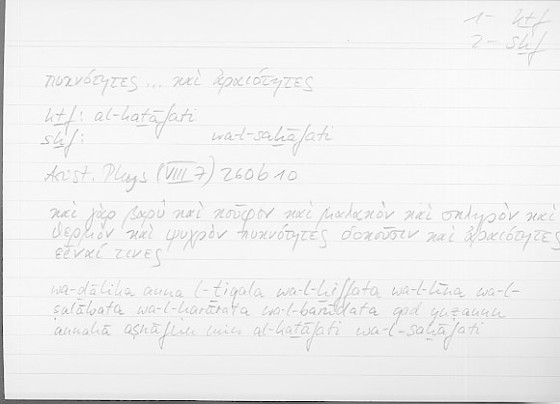 1- ktf
2- shf
πυκνότητες ... καὶ ἀραιότητες
ktf: al-katāfati
shf: wa-l-saḫāfati
Arist. Phys (VIII 7) 260b10
καὶ γὰρ βαρὺ καὶ κοῦφον καὶ μαλακὸν καὶ σκληρὸν καὶ
θερμὸν καὶ ψυχρὸν πυκνότητες δοκοῦσιν καὶ ἀραιότητες
εἶναί τινες
wa-ḏālika anna l-ṯiqala wa-l-ḫiffata wa-l-līna wa-l-
ṣalābata wa-l-ḥarārata wa-l-barūdata qad yuẓannu
annahā aṣnāfun min al-kaṯāfati wa-l-saḫāfati